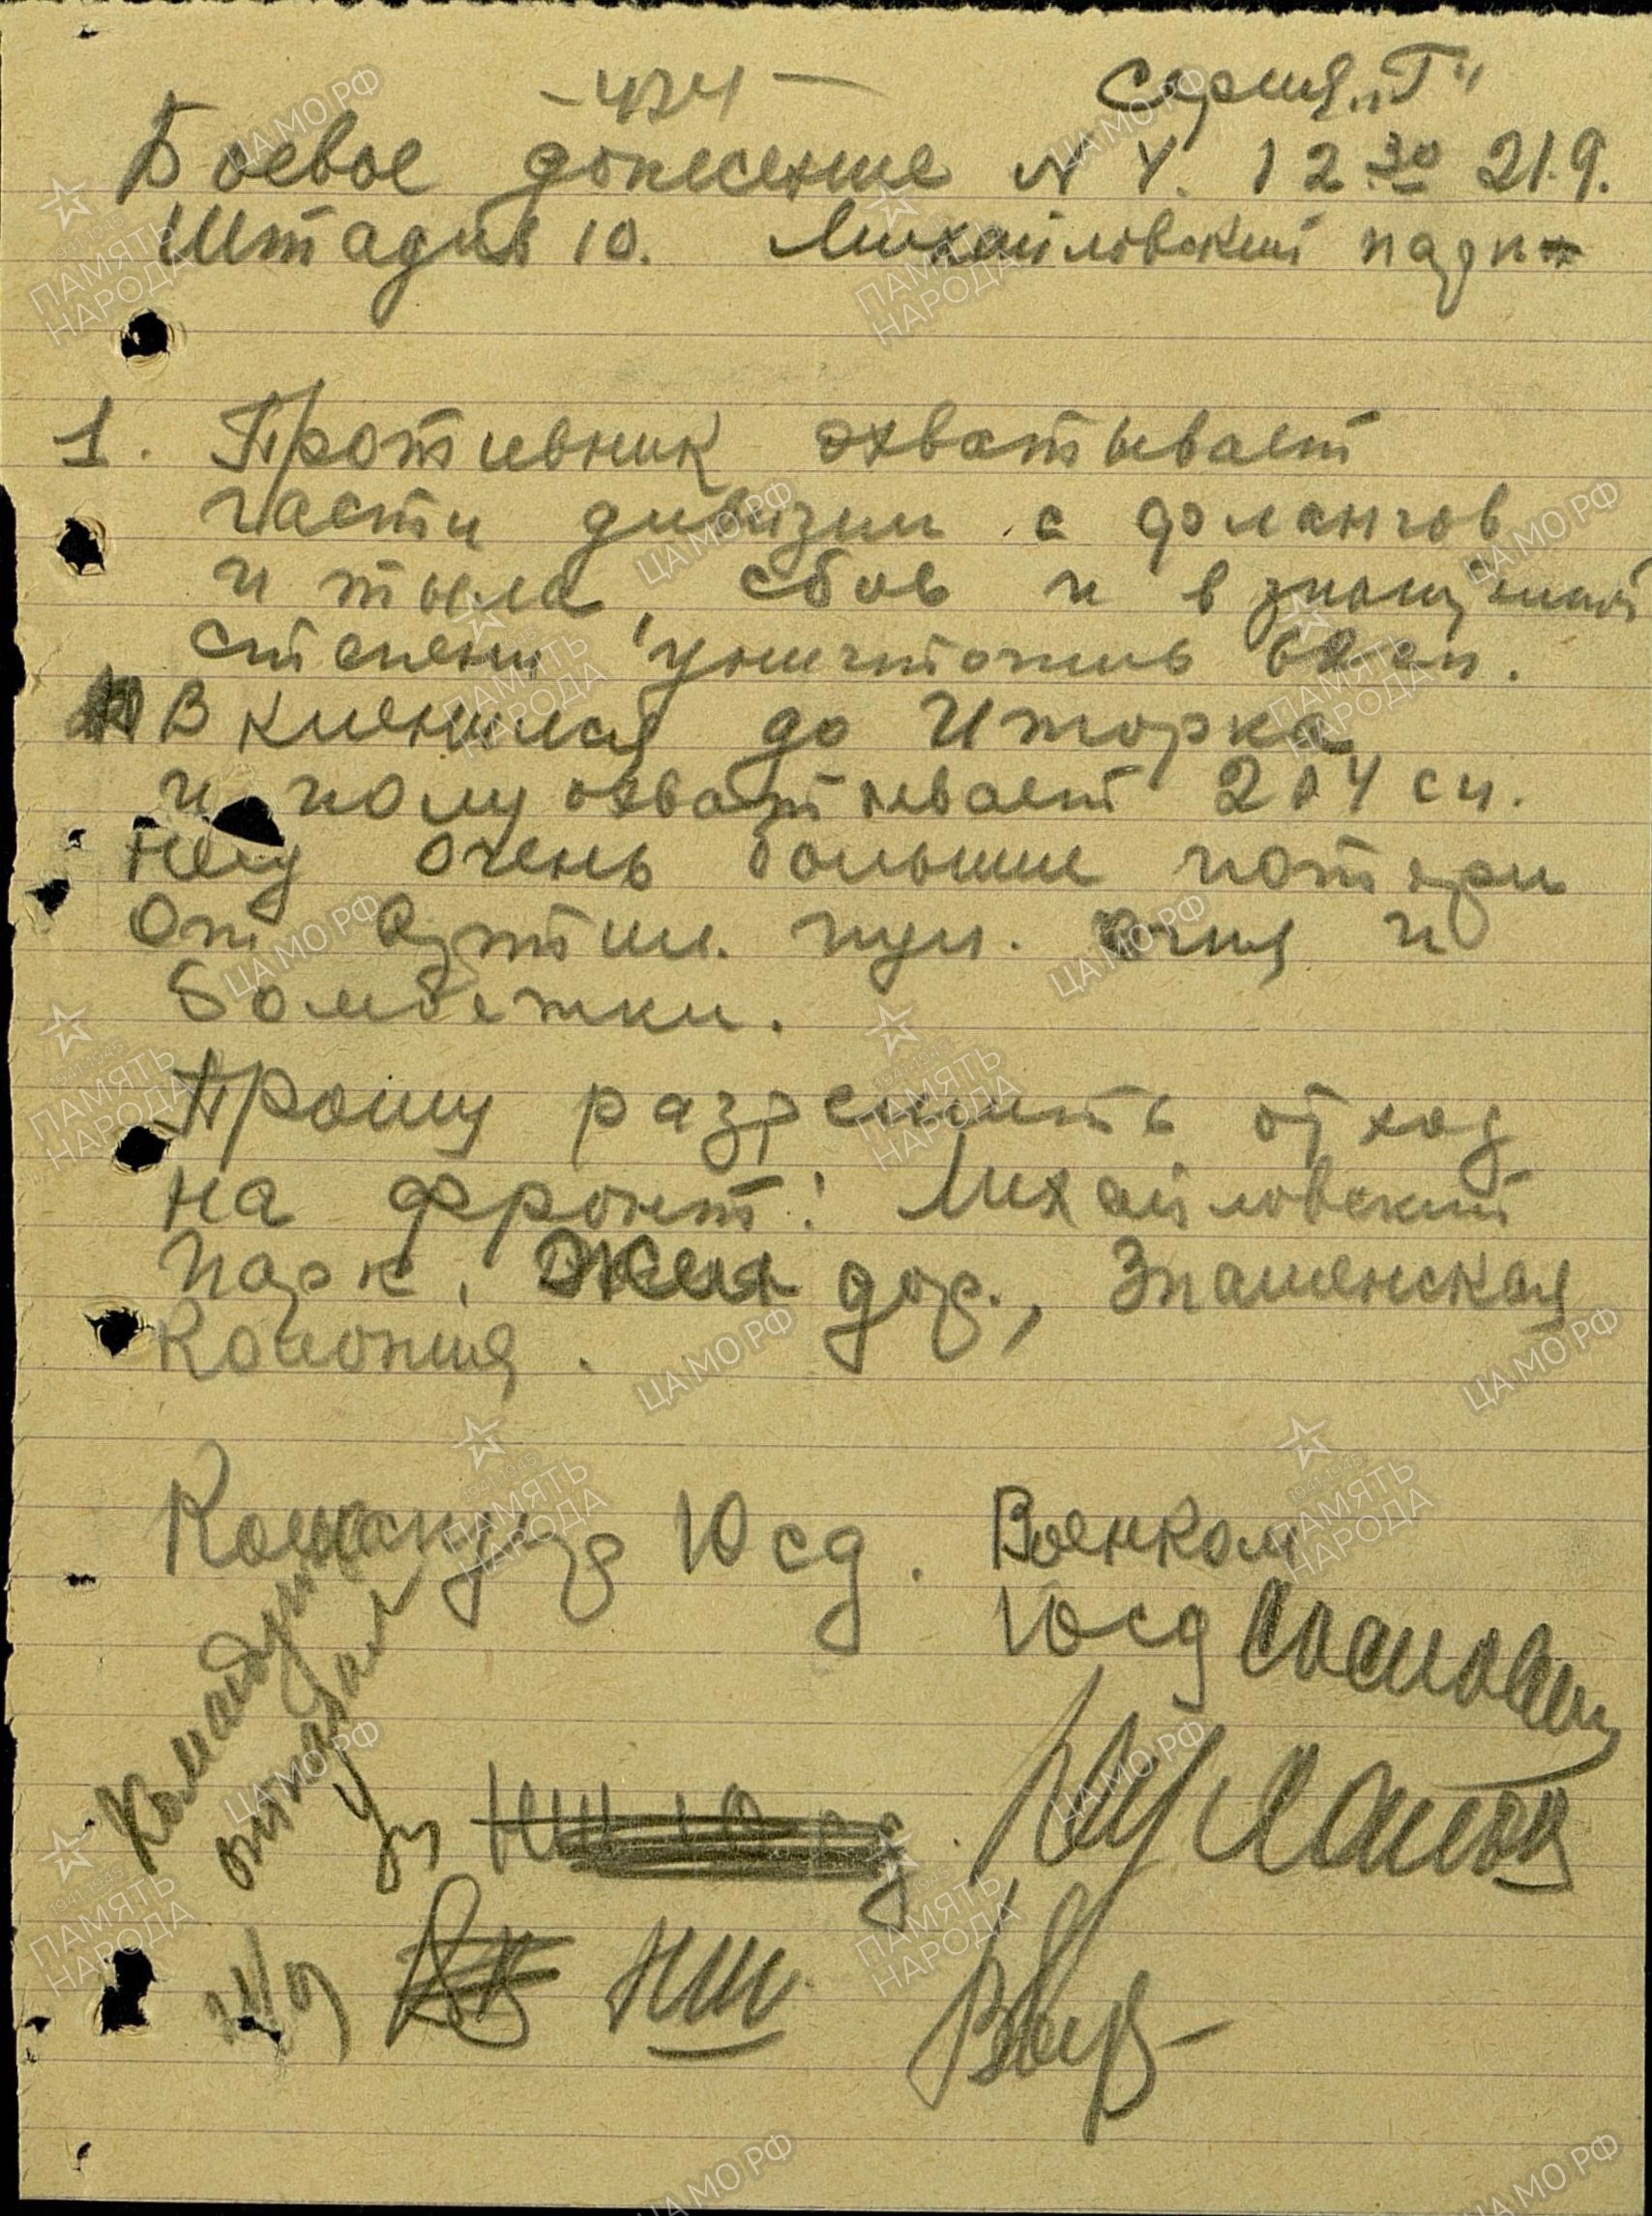 Серия „Г"
Боевое донесение № 4. 12 30 21.9.
Штадив 10. Михайловский парк
1. Противник охватывает
части дивизии с флангов
и тыла, сбив и в значит
степени уничтожив сп.
Вклинился до Иторка
и полуохватывает 204 сп.
Несу очень большие потери
от артил. пул. огня и
бомбежки.
Прошу разрешить отход
на фронт: Михайловский
парк, дор., Знаменская
колония.
10 сд. Военком
10 сд
отказал
21/09 НШ
ЦАМО РФ
ПАМЯТЬ НАРОДА
1941-1945